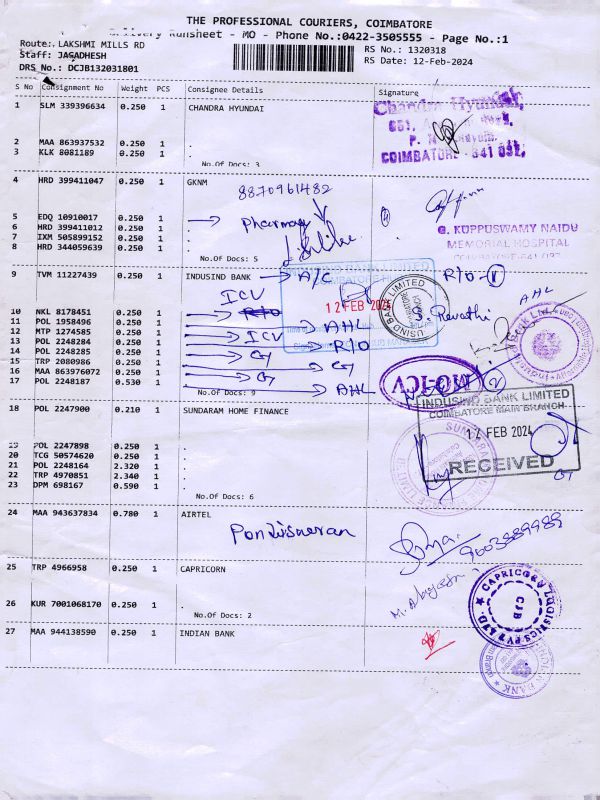 THE PROFESSIONAL COURIERS, COIMBATORE
Delivery Runsheet - MO - Phone No.:0422-3505555 - Page No.:1
Route: LAKSHMI MILLS RD
RS No.: 1320318
Staff: JAGADHESH
RS Date: 12-Feb-2024
DRS No.: DCJB132031801
S No Consignment No Weight PCS Consignee Details Signature
1 SLM 339396634 0.250 1 CHANDRA HYUNDAI
Chandra Hyundai,
COIMBATORE - 641 037.
2 MAA 863937532 0.250 1 .
3 KLK 8081189 0.250 1 .
No.Of Docs: 3
4 HRD 399411047 0.250 1 GKNM
8870961482
5 EDQ 10910017 0.250 1 .
Pharmacy
6 HRD 399411012 0.250 1 .
G. KUPPUSWAMY NAIDU
7 IXM 505899152 0.250 1 .
MEMORIAL HOSPITAL
8 HRD 344059639 0.250 1 .
No.Of Docs: 5
9 TVM 11227439 0.250 1 INDUSIND BANK
A/C
R/O
ICV
12 FEB 2024
AHL
10 NKL 8178451 0.250 1 .
R/O
S. Revathi
11 POL 1958496 0.250 1 .
AHL
12 MTP 1274585 0.250 1 .
ICV
R/O
13 POL 2248284 0.250 1 .
14 POL 2248285 0.250 1 .
15 TRP 2080986 0.250 1 .
16 MAA 863976072 0.250 1 .
17 POL 2248187 0.530 1 .
AHL
No.Of Docs: 9
INDUSIND BANK LIMITED
COIMBATORE MAIN BRANCH
18 POL 2247900 0.210 1 SUNDARAM HOME FINANCE
FEB 2024
RECEIVED
19 POL 2247898 0.250 1 .
20 TCG 50574620 0.250 1 .
21 POL 2248164 2.320 1 .
22 TRP 4970851 2.340 1 .
23 DPM 698167 0.590 1 .
No.Of Docs: 6
24 MAA 943637834 0.780 1 AIRTEL
25 TRP 4966958 0.250 1 CAPRICORN
CAPRICORN LOGISTICS PVT LTD.
CJB
26 KUR 7001068170 0.250 1 .
No.Of Docs: 2
27 MAA 944138590 0.250 1 INDIAN BANK